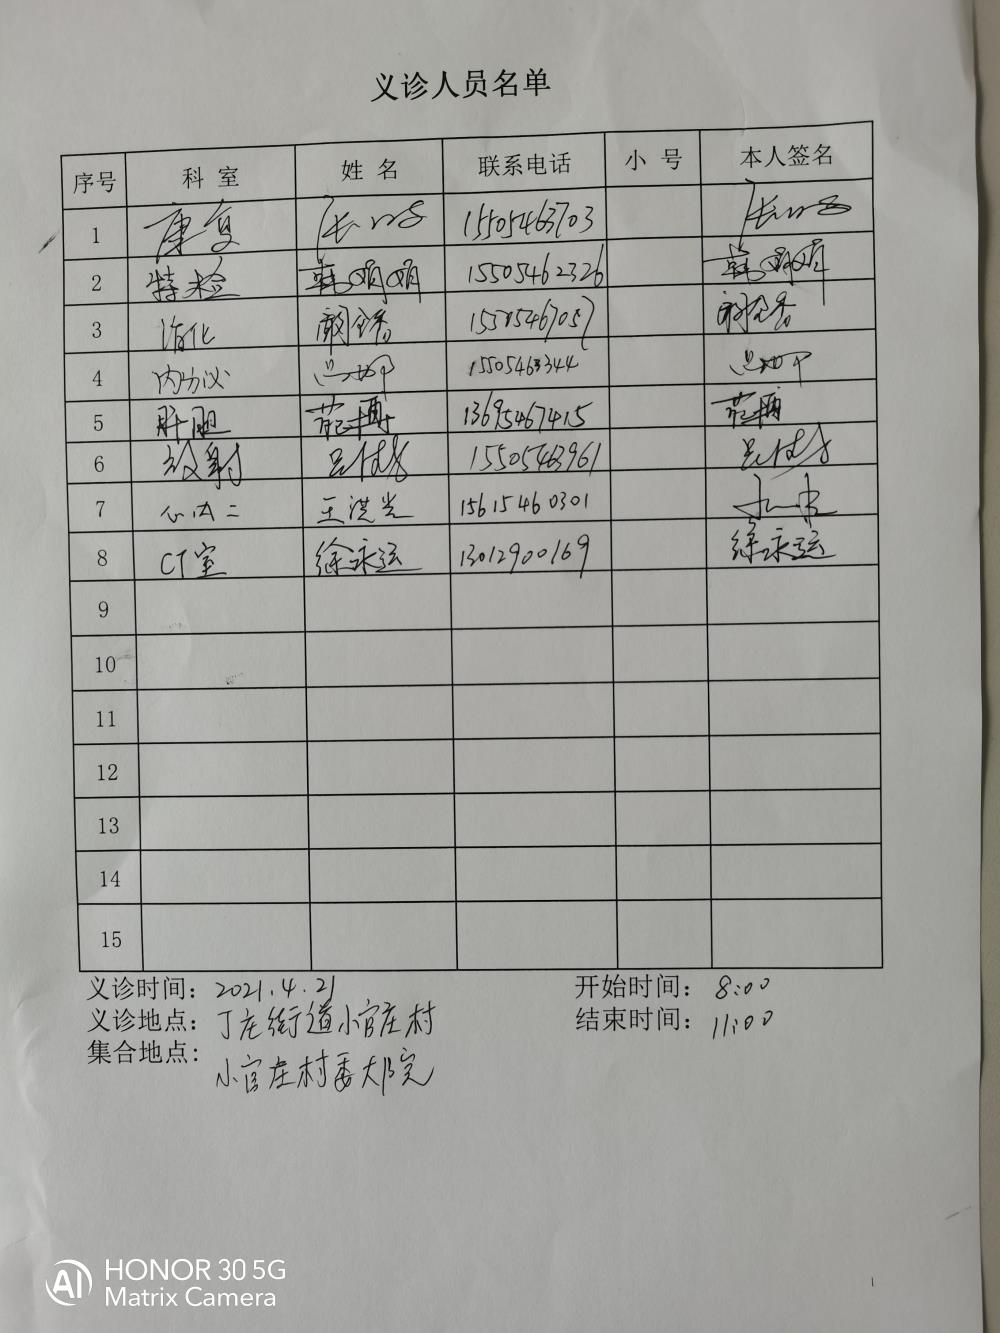 义诊人员名单
序号 科室 姓名 联系电话 小号 本人签名
1 康复 15505463703
2 特检 韩娟娟 15505462326 韩娟娟
3 消化 15505467057
4 内分泌 15505463344
5 肝胆 13695467415
6 放射 15505463961
7 心内二 王洪光 15615460301
8 CT室 徐永强 13012900169 徐永强
9
10
11
12
13
14
15
义诊时间: 2021.4.21 开始时间: 8:00
义诊地点: 丁庄街道小官庄村 结束时间: 11:00
集合地点:
小官庄村委大院
HONOR 30 5G
AI Matrix Camera